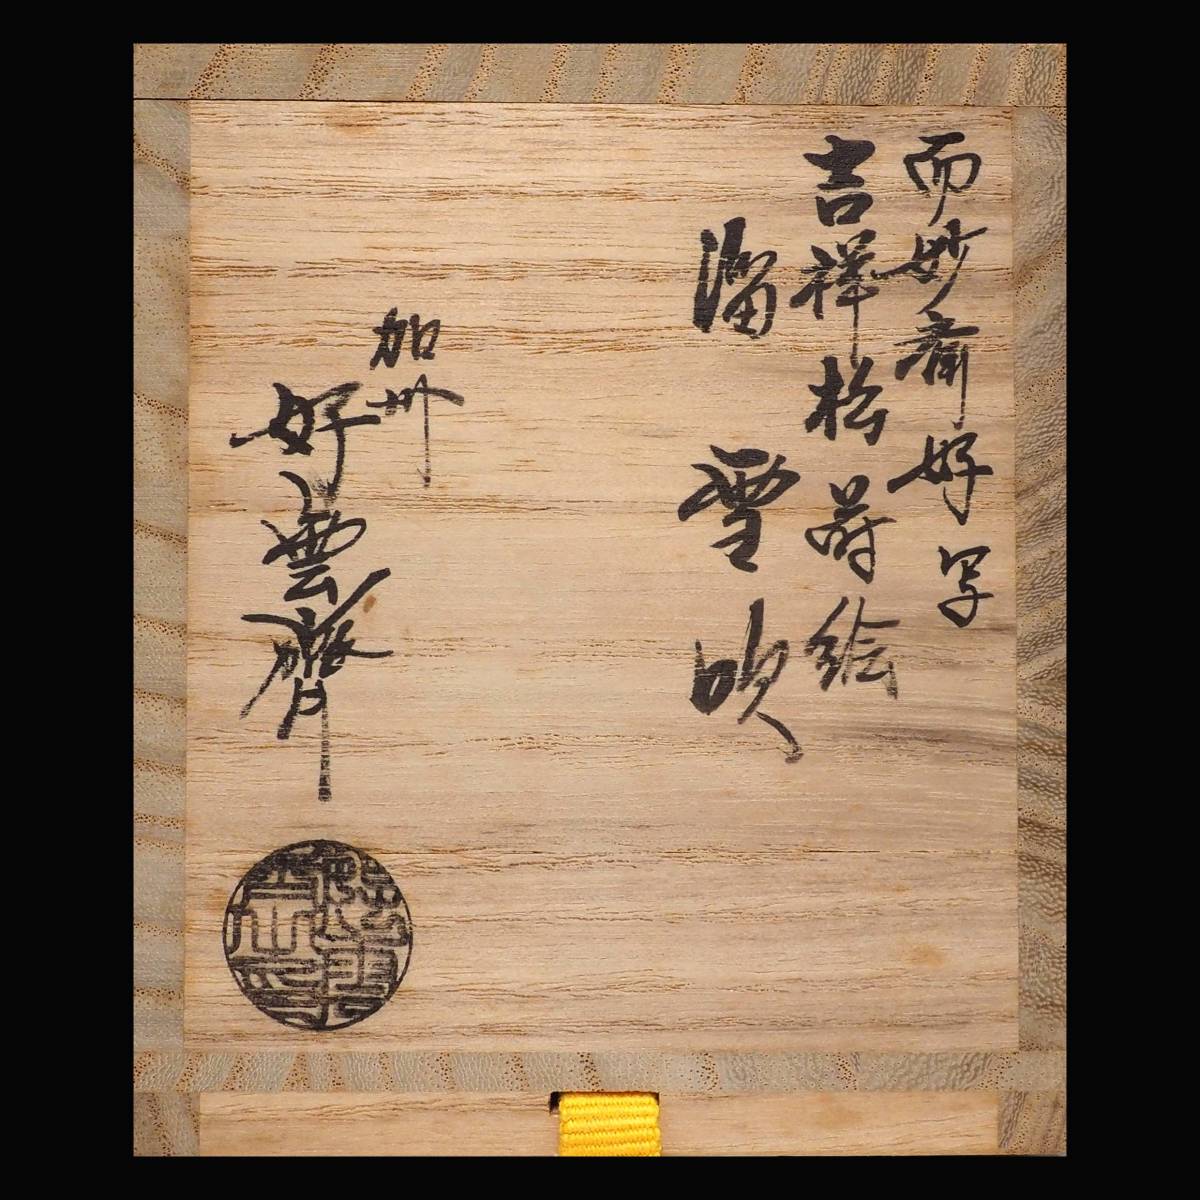 而妙斎好写
吉祥松蒔絵
溜 雪吹
加州
好雲齋